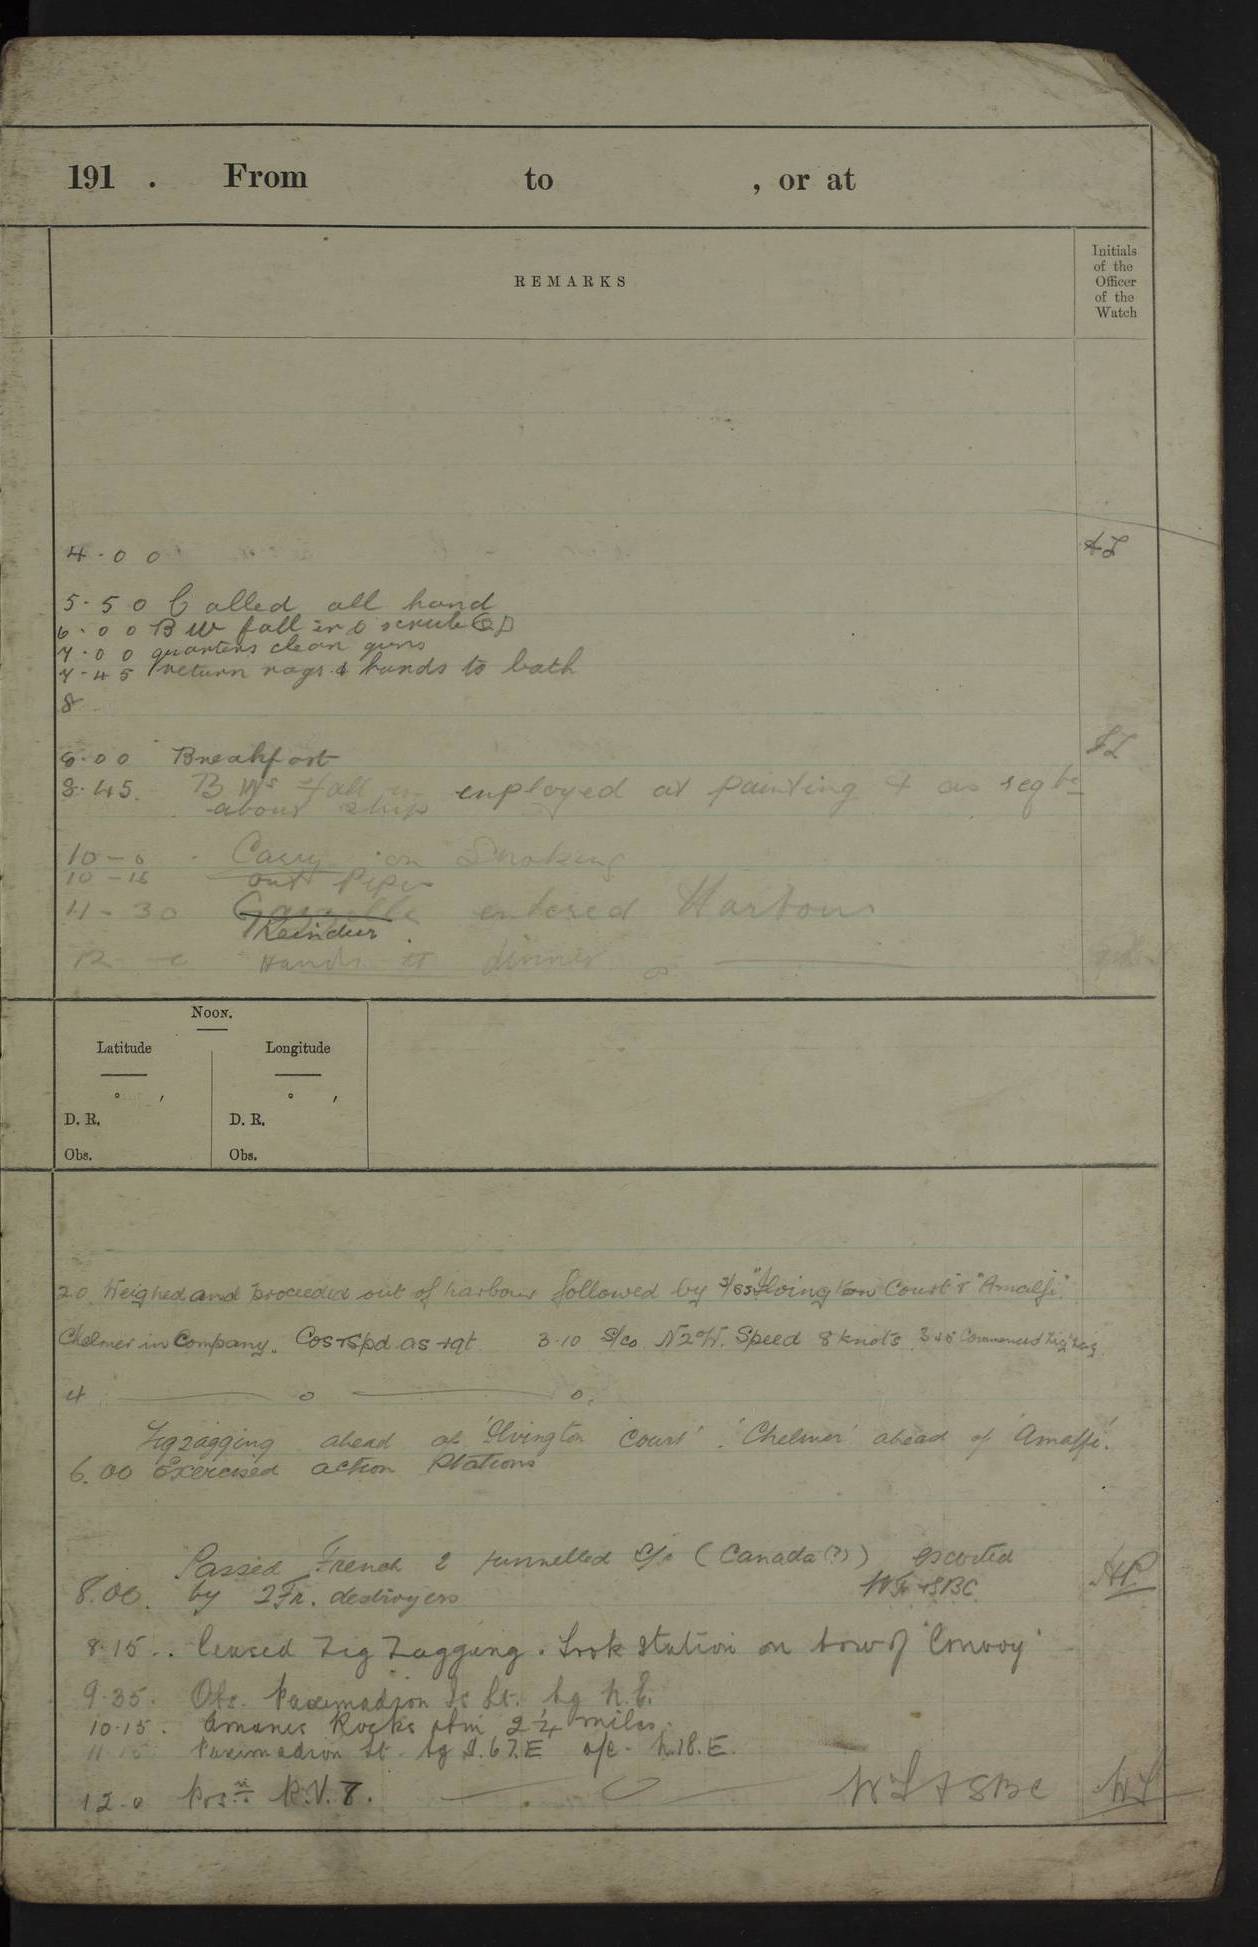 191 . From to , or at
REMARKS
Initials
of the
Officer
of the
Watch
4.00
5.50 Called all hand
6.00 BW fall in & scrub QD
7.00 quarters clean guns
7.45 return rags & hands to bath
8
8.00 Breakfast
8.45. B Ws fall in employed at painting & as reqte
about ship
10-0 . Carry on Smoking
10-15 out Pipes
11-30 Gazelle entered Harbour
Reindeer
12 - 0 Hands to dinner
NOON.
Latitude Longitude
° ′ ° ′
D. R. D. R.
Obs. Obs.
20. Weighed and proceeded out of harbour followed by "Elvington Court" & "Amalfi".
Chelmer in Company. Cos & Spd as rqt 3.10 S/co N2°W. Speed 8 knots. Commenced Zig Zag
4 o o.
Zigzagging ahead of 'Elvington Court'. 'Chelmer' ahead of 'Amalfi'.
6.00 Exercised action Stations
Passed French 2 funnelled S/s (Canada (?)) escorted
8.00. by 2 Fr. destroyers
8.15 .. Ceased Zig Zagging. Took Station on bow of 'Convoy'
9.35. Obs. Paximadion Is Lt. bg N.E.
10.15. Amanes Rocks abm 2¼ miles.
Paximadion Lt. bg S.67.E a/c N.18.E.
12.0 Posn R.V.7. WL & SBC WL